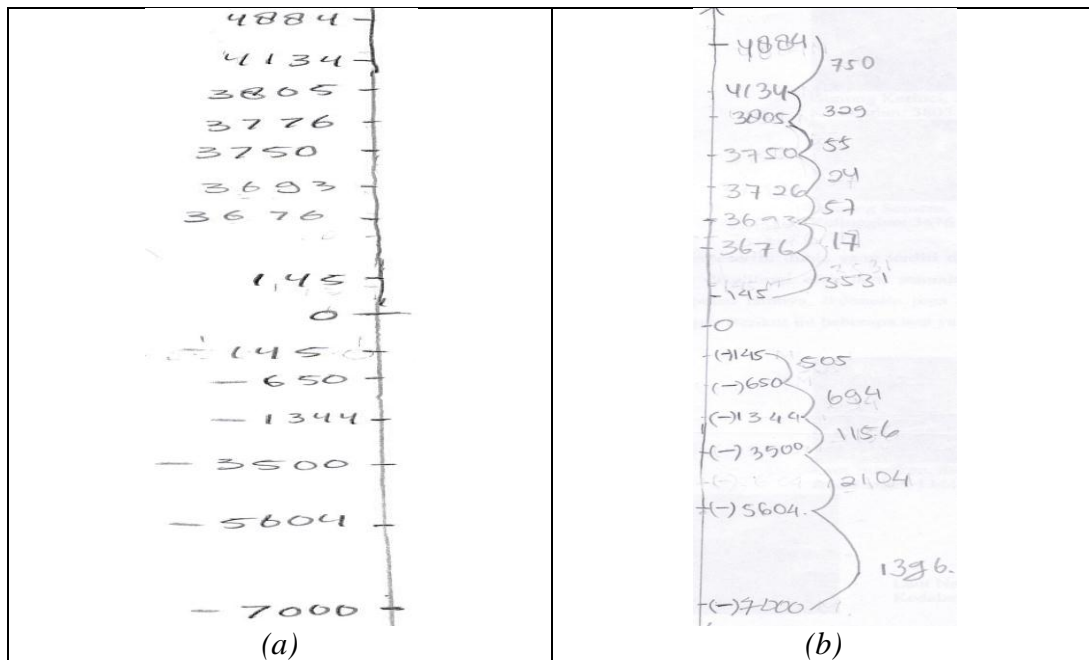 4884
4134
3805
3776
3750
3693
3676
1,45
0
- 145
- 650
- 1344
- 3500
- 5604
- 7000
(a)
4884
750
4134
329
3805
55
3750
24
3726
57
3693
17
3676
3531
145
0
(-)145
505
(-)650
694
(-)1344
1156
(-)3500
2104
(-)5604.
1396.
(-)7000
(b)